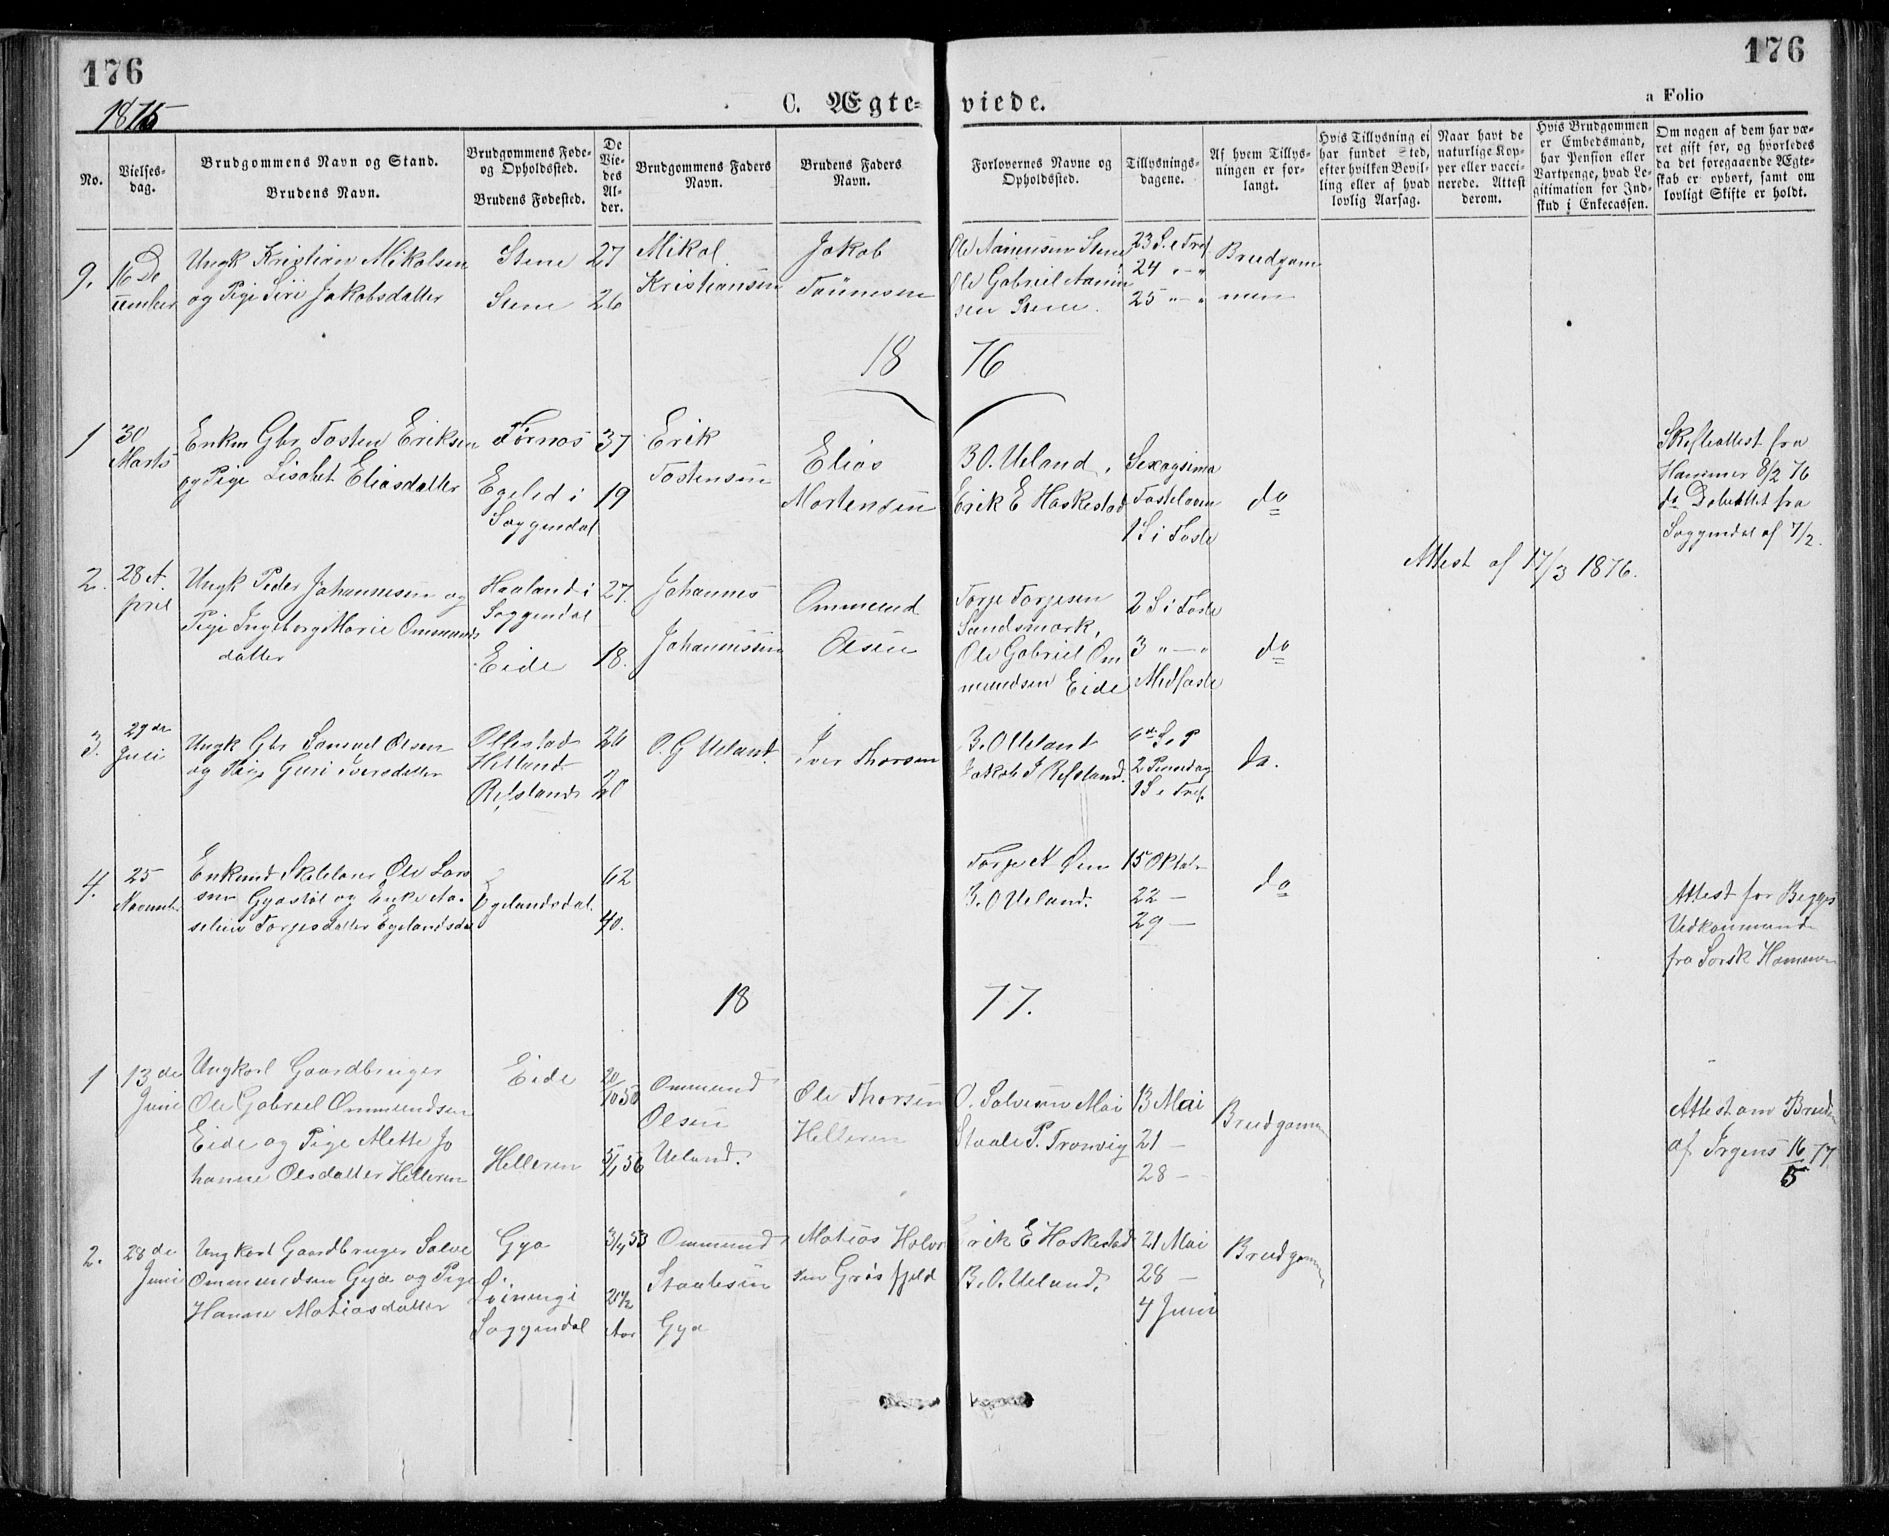 176
176
1875
C. Ægte-
viede.
a Folio
No.
Vielses-
dag.
Brudgommens Navn og Stand.
Brudens Navn.
Brudgommens Føde-
og Opholdssted.
Brudens Fødested.
De
Vie-
des
Al-
der.
Brudgommens Faders
Navn.
Brudens Faders
Navn.
Forlovernes Navne og
Opholdssted.
Tillysnings-
dagene.
Af hvem Tillys-
ningen er for-
langt.
Hvis Tillysning ei
har fundet Sted,
efter hvilken Bevil-
ling eller af hvad
lovlig Aarsag.
Naar havt de
naturlige Kop-
per eller vacci-
nerede. Attest
derom.
Hvis Brudgommen
er Embedsmand,
har Pension eller
Vartpenge, hvad Le-
gitimation for Ind-
skud i Enkecassen.
Om nogen af dem har væ-
ret gift før, og hvorledes
da det foregaaende Ægte-
skab er ophørt, samt om
lovligt Skifte er holdt.
9.
16 De
cember
Ungk Kristian Mikalsen
og Pige Siri Jakobsdatter
Stene
Stene
27
26
Mikal
Kristiansen
Jakob
Tønnesen
Ole Aanensen Stene
Ole Gabriel Aanen
sen Stene.
23 S. e Tref
24 " — "
25 " — "
Brudgom
men
18 76
1
30
Marts
Enkm Gbr. Tosten Eriksen
og Pige Lisabet Eliasdatter
Tørnes
Egeled i
Soggendal
37
19
Erik
Tostensen
Elias
Mortensen
B O. Ueland,
Erik E Haskestad
Sexagsima
Fastelaven
1 S i Faste
do
Skifteattest fra
Hammer 8/2 76
do
Soggendal af 7/2.
2.
28 A
pril
Ungk Peder Johannesen og
Pige Ingeborg Marie Ommunds
datter
Haaland i
Soggendal
Eide
27.
18.
Johannes
Johannessen
Ommund
Olsen
Torje Torjesen
Sandsmark,
Ole Gabriel Om
mundsen Eide
2 S i Faste
3 " — "
Midfaste
do
Attest af 17/3 1876.
3.
29de
Juli
Ungk Gbr Samuel Olsen
og Pige Guri Iversdatter
Ollestad
Hetland
Refsland
26
20
O. G Ueland.
Iver Thorsen
B. O Ueland
Jakob I Refsland.
6te S. e P
2 Pinsedag
1 S e Tref.
do.
4.
25
Novemb
Enkmd Skolelærer Ole Lar
sen Gyastøl og Enke Aa-
seline Torjesdatter Egelandsdal
Egelandsdal.
62
40.
Torje N Øen
B. O Ueland.
15 Oktob
22 —
29 —
do
Attest for Begges
Vedkommende
fra Sorsk Hammer
18 77.
1
13 de
Juni
Ungkarl Gaardbruger
Ole Gabriel Ommundsen
Eide og Pige Mette Jo
hanne Olsdatter Helleren
Eide
Helleren
20/10 50
5/1 56
Ommund
Olsen
Ueland.
Ole Thorsen
Helleren
O. Salvesen Moi
Staale P. Tronvig
13 Mai
21 —
28 —
Brudgommen
Attest om Bruden
af Irgens 16/5 77.
2.
28 de
Juni
Ungkarl Gaardbruger Salve
Ommundsen Gya og Pige
Hanne Matiasdatter
Gya
i
Soggendal
3/4 53
21 1/2
Aar
Ommund
Staalesen
Gya
Matias Halvor
sen Grøsfjeld
Erik E Haskestad
B. O. Ueland.
21 Mai
28 —
4 Juni
Brudgommen